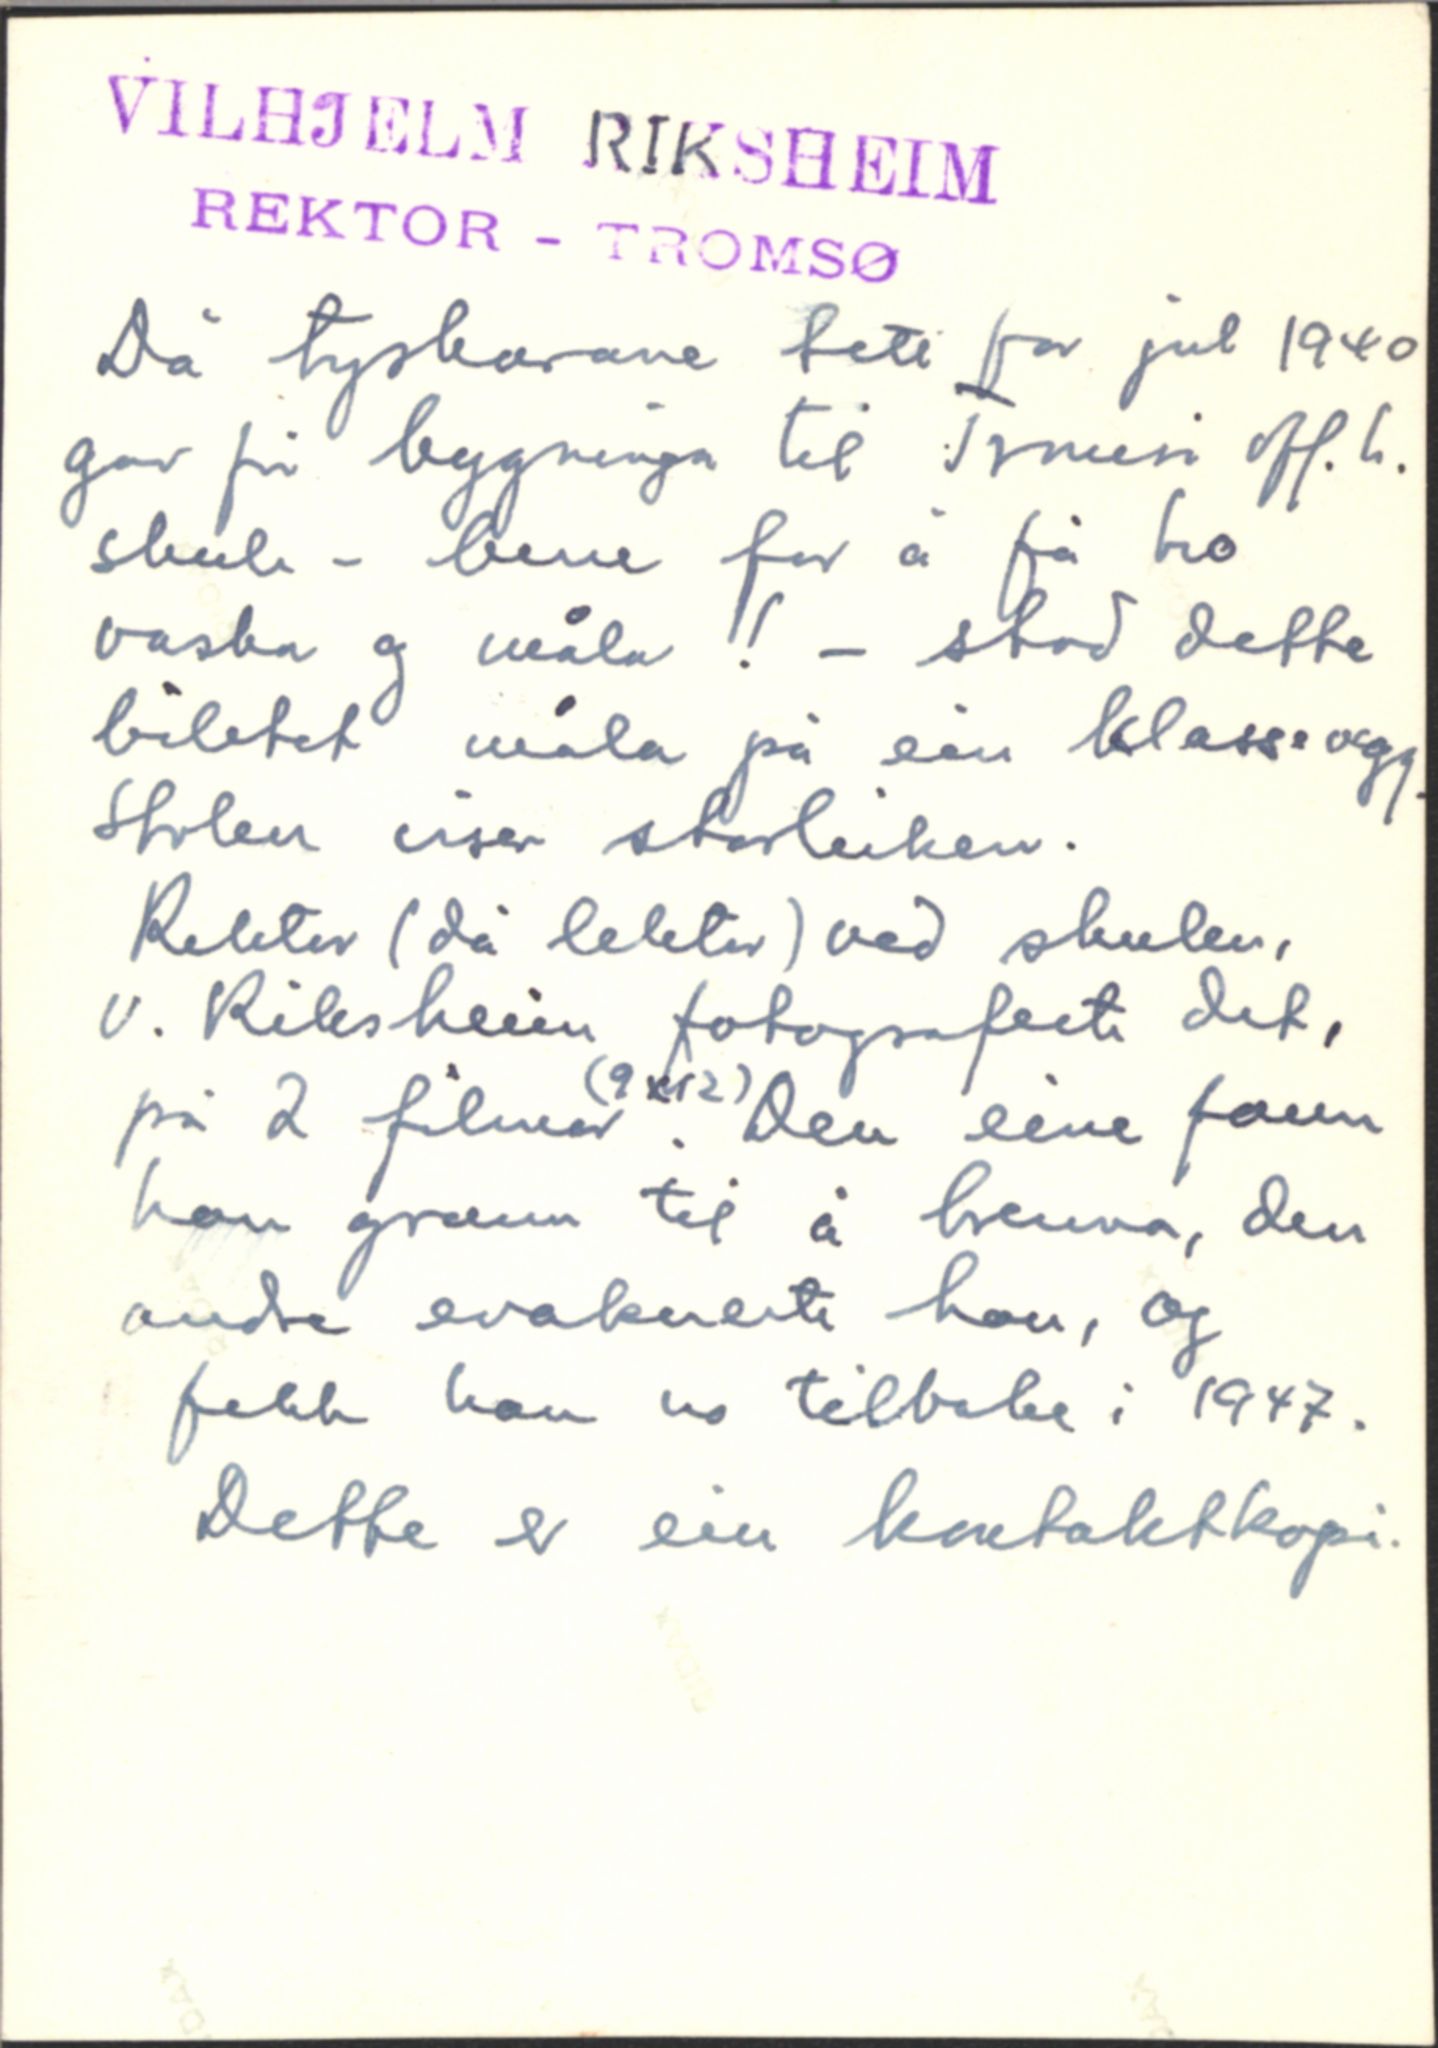 VILHJELM RIKSHEIM
REKTOR - TROMSØ
Då tyskarane beti før jul 1940
gav frå bygninga til Tromsø off. h.
skule - berre for å få ho
vaska og måla! - stod dette
biletet måla på ein klassevegg.
Stolen viser storleiken.
Rektor (då lektor) ved skulen,
V. Riksheim fotograferte det,
på 2 filmar (9x12). Den eine fann
han grann til å brenna, den
andre evakuerte han, og
fekk han no tilbake i 1947.
Dette er ein kontaktkopi.